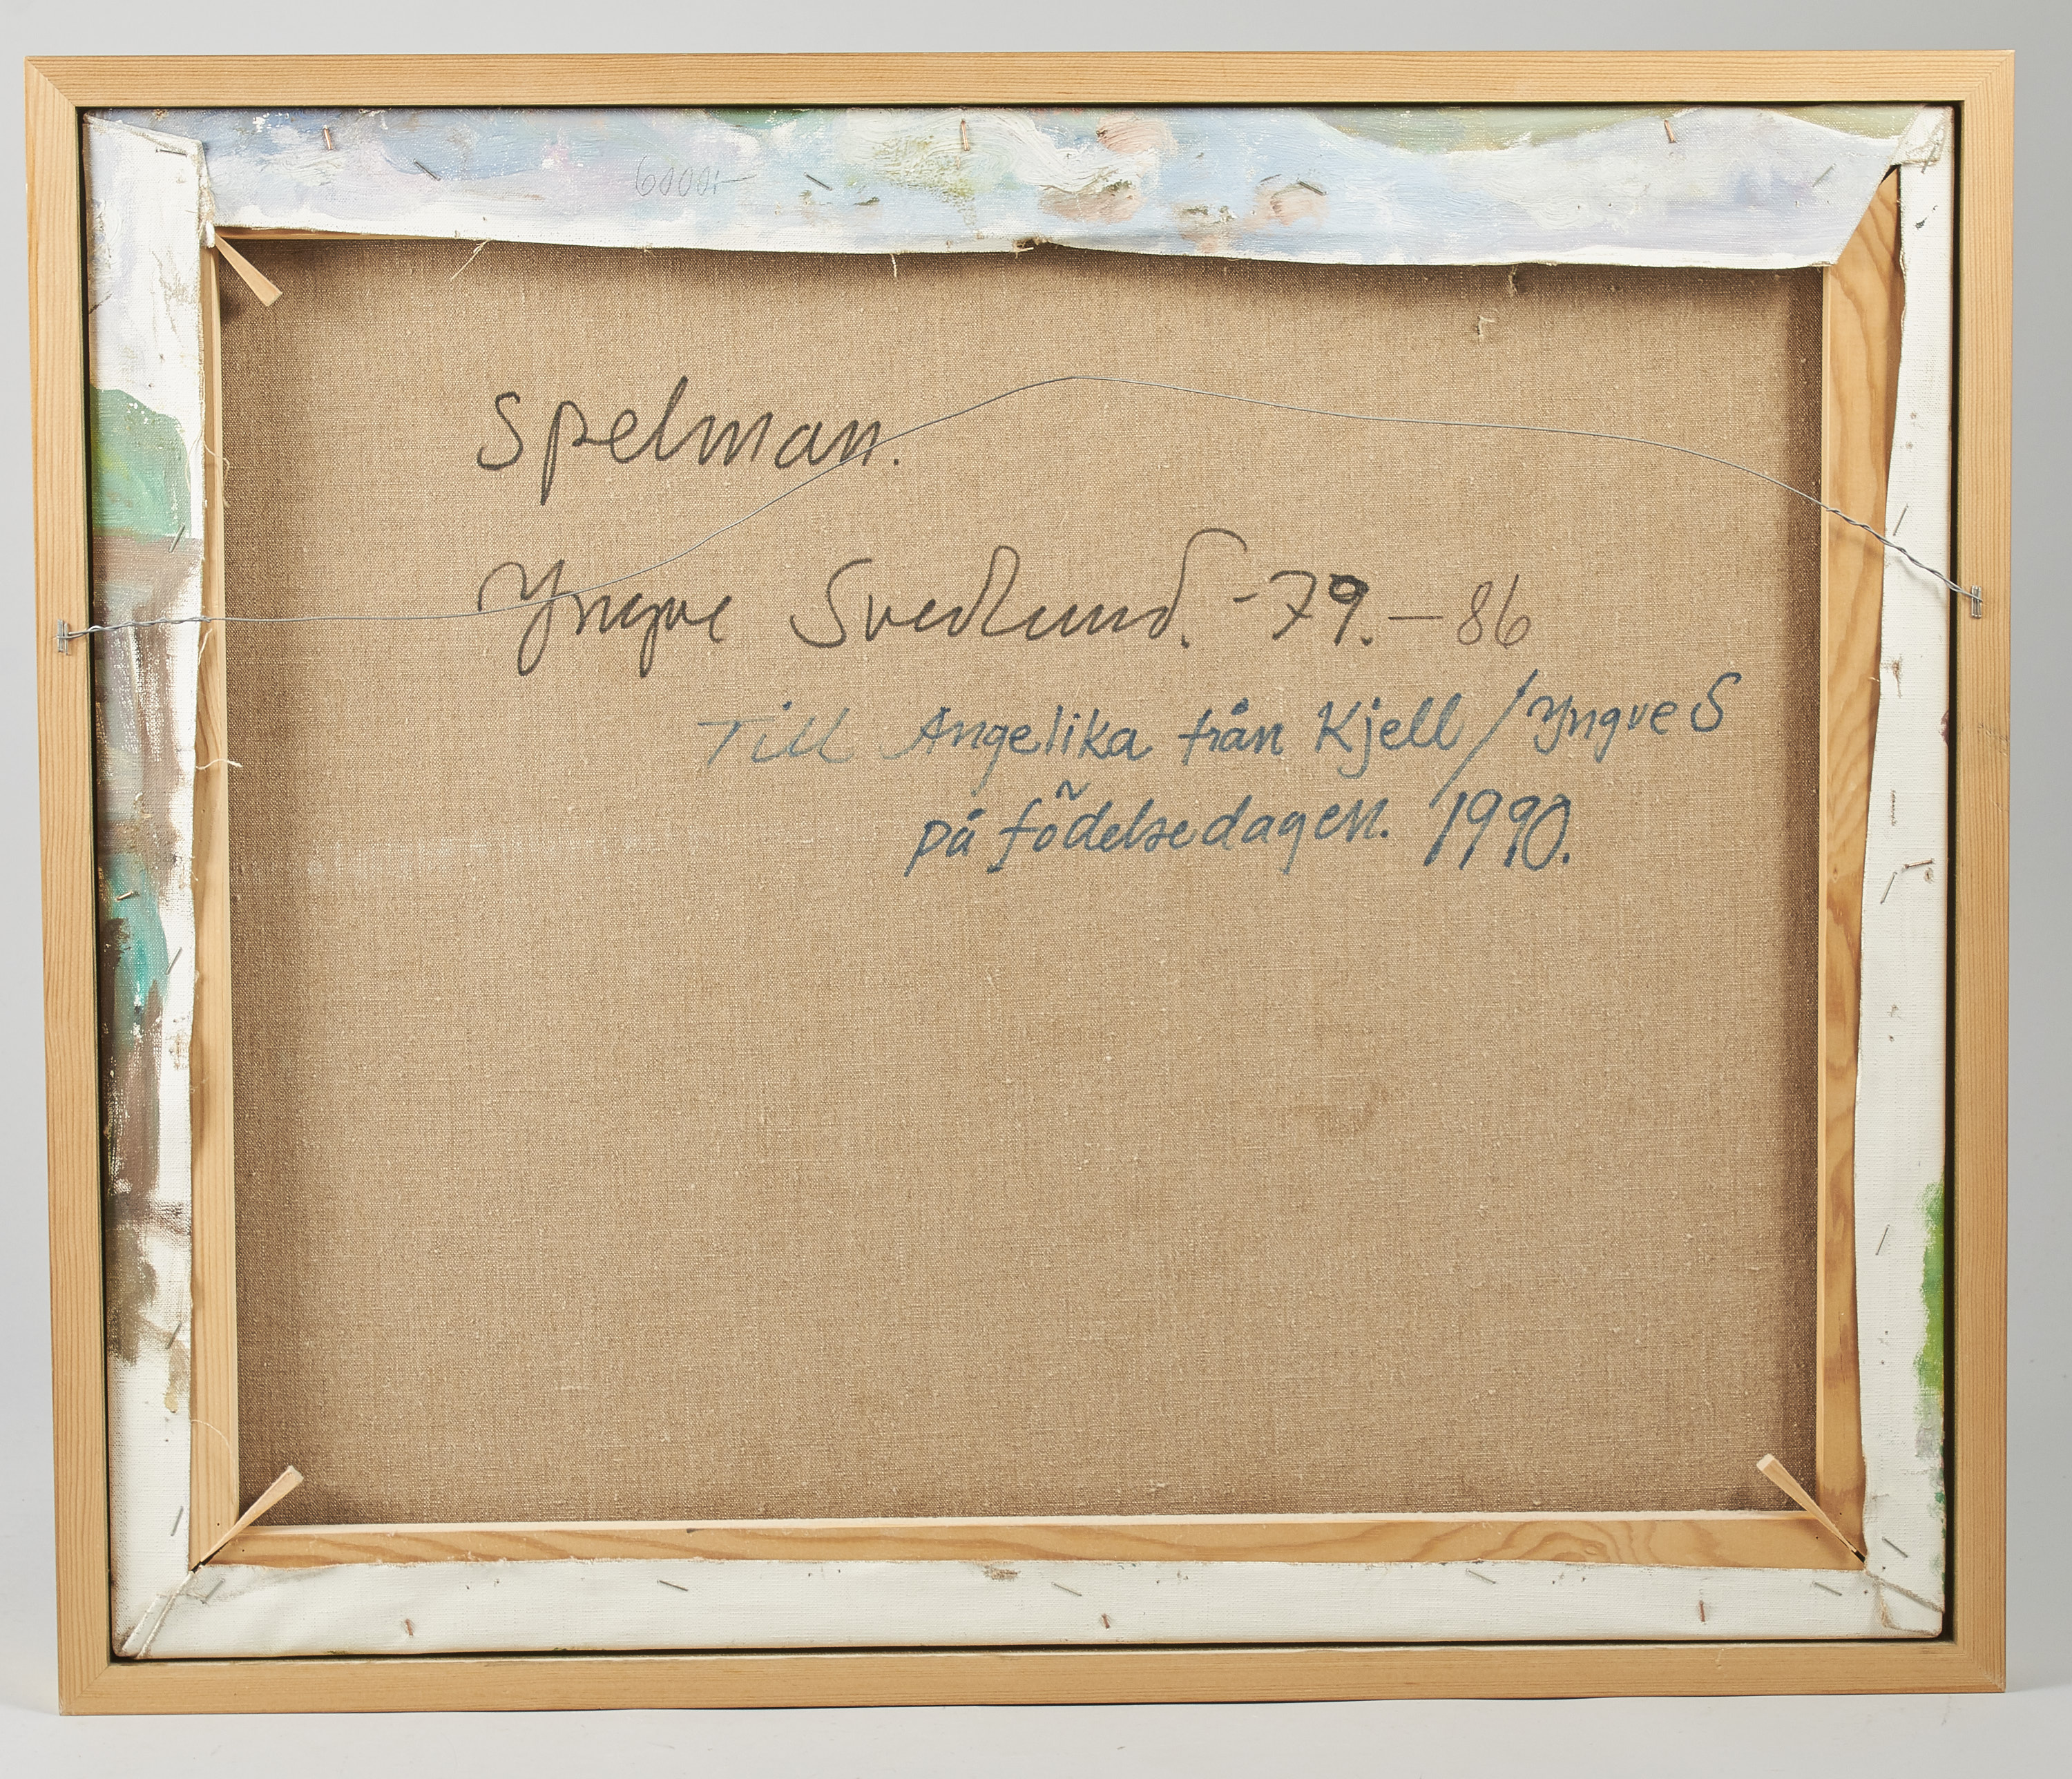 6000:-
Spelman.
Yngve Svedlund. -79. - 86
Till Angelika från Kjell / Yngve S
på födelsedagen. 1990.